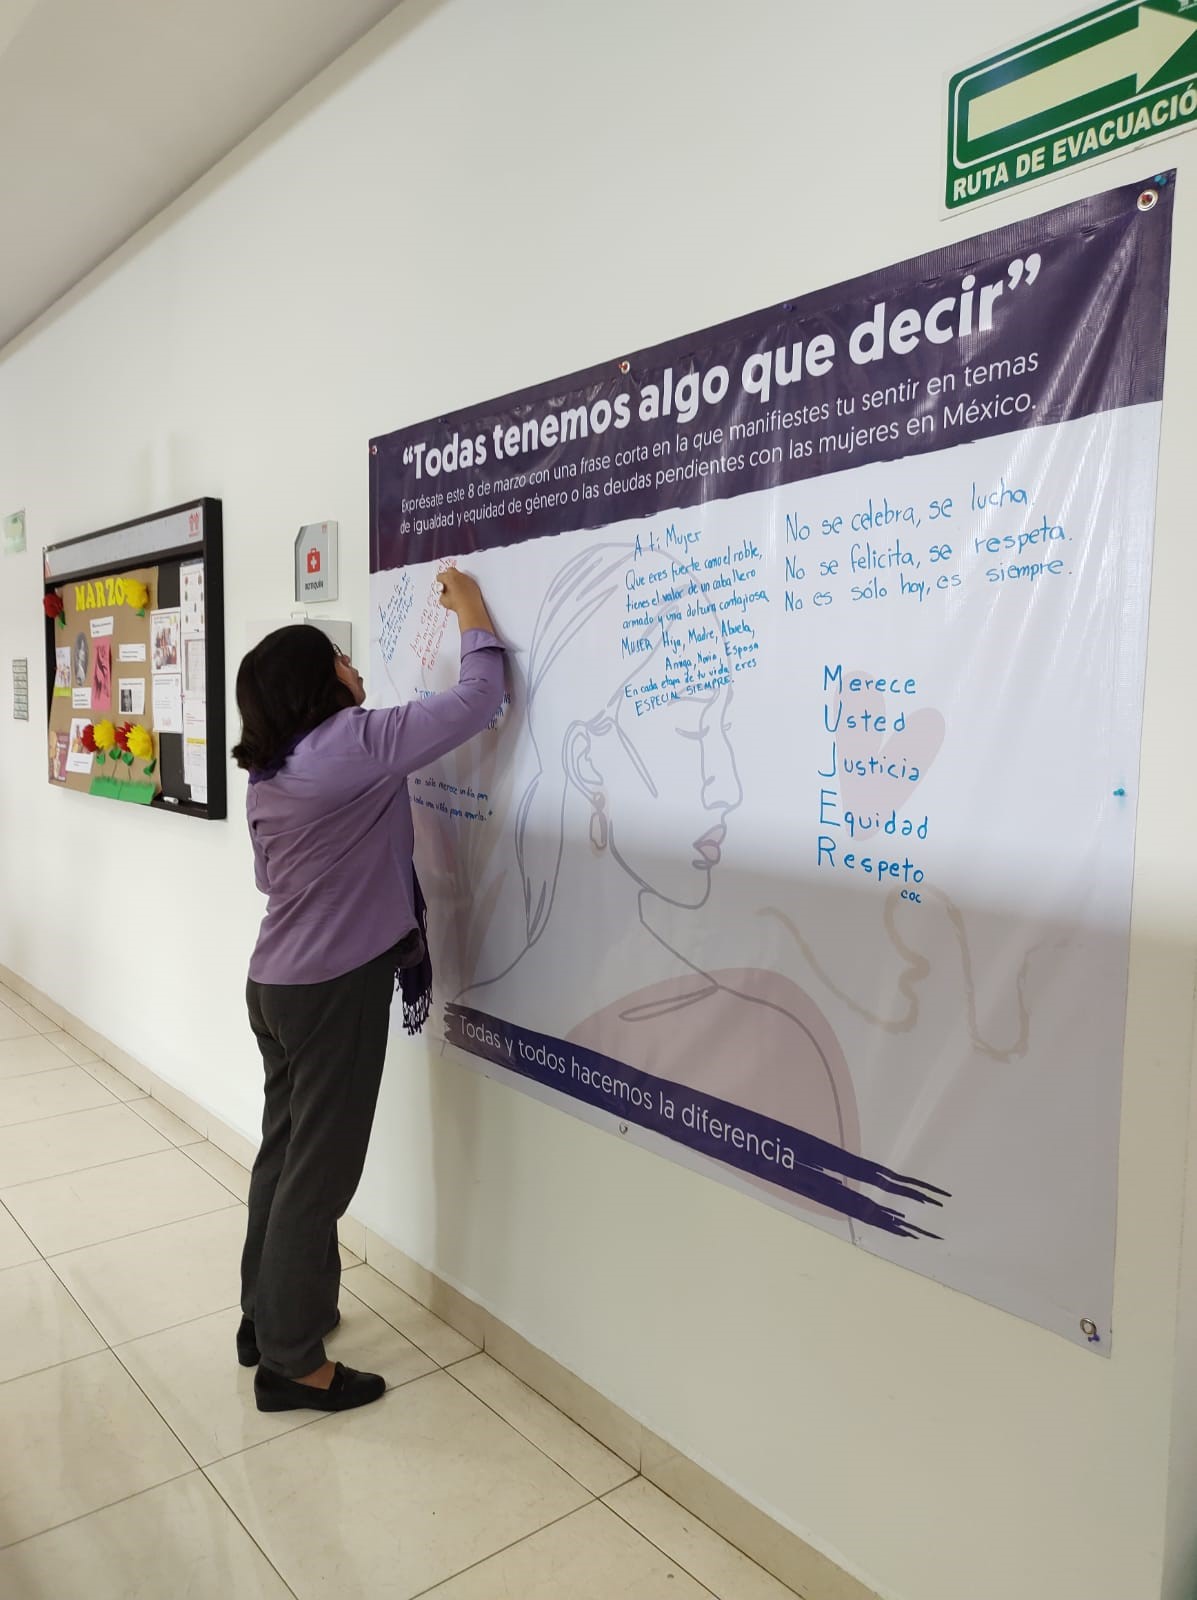 RUTA DE EVACUACIÓ
“Todas tenemos algo que decir”
Exprésate este 8 de marzo con una frase corta en la que manifiestes tu sentir en temas
de igualdad y equidad de género o las deudas pendientes con las mujeres en México.
MARZO
BOTIQUÍN
A ti Mujer
Que eres fuerte como el roble,
tienes el valor de un caballero
armado y una dulzura contagiosa
MUJER Hija, Madre, Abuela,
Amiga, Novia, Esposa
En cada etapa de tu vida eres
ESPECIAL SIEMPRE.
No se celebra, se lucha
No se felicita, se respeta.
No es sólo hoy, es siempre.
Merece
Usted
Justicia
Equidad
Respeto
COC
no sólo merece un día para
toda una vida para amarla."
Todas y todos hacemos la diferencia